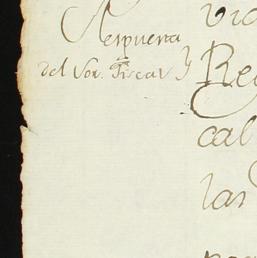 Respuesta
del Sor. Fiscal
Vis
Re
cal
las